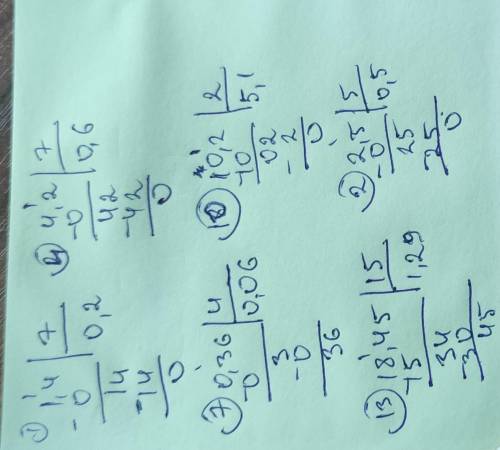 1) 1,4 | 7
-0 | 0,2
14
-14
0
4) 4,2 | 7
-0 | 0,6
42
-42
0
7) 0,36 | 4
-0 | 0,06
3
-0
36
10,2 | 2
-10 | 5,1
02
-2
0
13) 18,45 | 15
-15 | 1,29
34
-30
45
2) 2,5 | 5
-0 | 0,5
25
-25
0